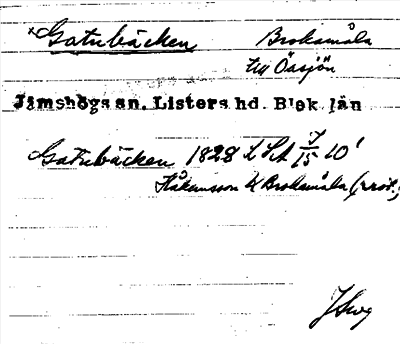 ×Gatubäcken Broksmåla
till Öasjön
Jämshögs sn. Listers hd. Blek. län
Gatubäcken 1828 L St A 7/15 10'
Håkansson k Broksmåla (